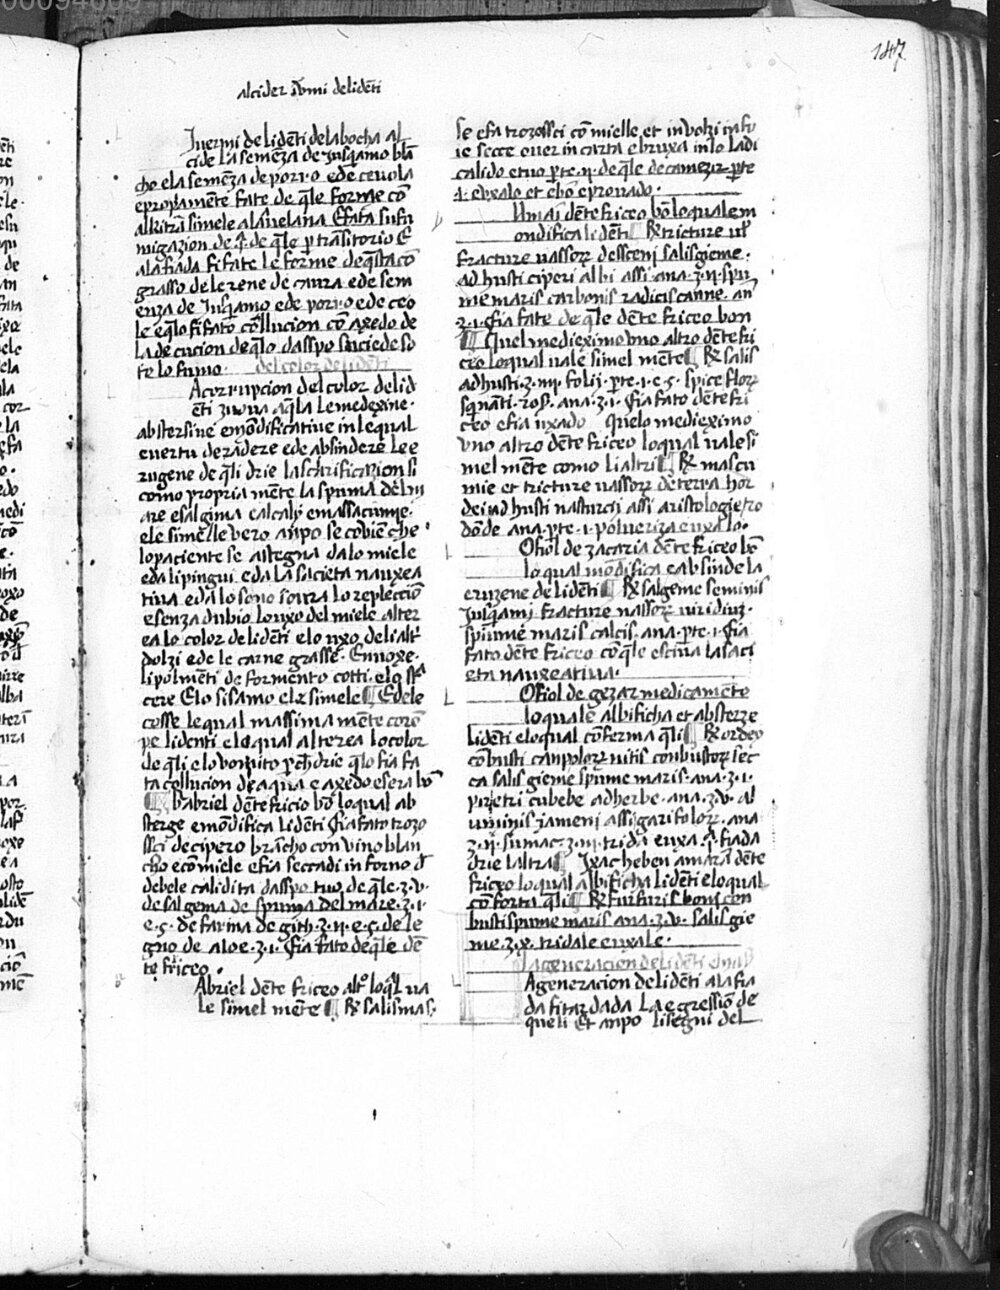 147
alcider i vermi deli dēti
I uermi de li dēti de la bocha al
cide la semēza de Jusq̄amo biā
cho e la semēza de porro e de ceuola
e propamēte fate de q̄le forme cō
alkitrā simele a lauelana E fata sufu
migazion de
a la fiada si fate le forme de q̄sta cō
grasso de le rene de caura e de sem
enza de Jusq̄amo e de porro e de ceo
le e q̄lo si fato cōllucion cō axedo de
la decucion de q̄lo dasspo
te lo fumo. del color de li dēti
A corrupcion del color de li d
ēti zuoua a q̄la le medexine
abstersiue e mōdificatiue in le qual
e uertu de radere e de absindere le e
ruzene de q̄li drie la scarificazion si
como propria mēte la spuma del m
are e sal gima e calcaly e massacumie.
e le simelle vero anpo se cōuien che
lo paciente se astegna da lo miele
e da li pingui e da la sacieta nauxea
tiua e da lo sono soura lo replecciō
e senza dubio lo uxo del miele alter
ea lo color de li dēti e lo uxo de li alt'
dolzi e de le carne grasse. Ennoxe.
li polmenti de formento cotti. e lo
cere E lo sisamo e le simele ¶ E de le
cosse le qual massima mēte corō
pe li denti e lo qual alterea lo color
de q̄li e lo vomito drie q̄lo sia fa
ta collucion de aqua e axedo e sera bō
¶ Gabriel dēte fricio bō lo qual ab
sterge e mōdifica li dēti sia fato trozo
ssci de cipero brācho con vino blan
cho e cō miele e sia seccadi in forno d
debele calidita dasspo tuo. de q̄le. ʒ. v.
de sal gema de spuma del mare. ʒ. i.
e. s. de farina de gith. ʒ. ii. e. s. de le
gno de aloe. ʒ. i. sia fato de q̄le dē
te friceo.
Abriel dēte friceo alt' loq̄l ua
le simel mēte ¶ ℞ salis mas.
se e fa trozossci cō mielle et inuolzi
ie secce ouer in carta e bruxa in lo ladi
calido e tuo pte. ii. de q̄le de pte
i. e uxalo et e bō e prouado.
Umai dēte friceo bō lo qual e m
ondifica li dēti ¶ ℞ tricture ul'
fracture uassorꝝ salis gieme.
adhusti ciperi albi assi. ana. ʒ. ii. spu
me maris carbonis radicis canne. an̄
ʒ. i. sia fate de q̄le dēte friceo bon
¶ Quel mediesimo uno altro dēte fri
ceo lo qual uale simel mēte ¶ ℞ salis
adhusti. ʒ. iiii. folii. pte. i. e. s. spice florꝝ
sq̄nāti. ros. ana. ʒ. i. sia fato dēte fri
ceo e sia uxado quelo mediesimo
vno altro dēte friceo lo qual uale si
mel mēte como li altri ¶ ℞
mie et tricture uassorꝝ de terra hor
dei adhusti nasturci assi aristologie ro
dōde. ana. pte. i. poluerizza e uxalo.
Ofiol de zacaria dēte friceo bō
lo qual mōdifica e absinde la
eruzene de li dēti ¶ ℞ sal geme seminis
Jusq̄ami fracture uassorꝝ uiridiuꝫ.
spiume maris calcis. ana. pte. i. sia
fato dēte friceo cō q̄le eschiua la saci
eta nauxeatiua.
Ofiol de gezar medicamēte
lo quale albificha et absterze
li dēti e lo qual cōferma q̄li ¶ ℞ ordeo
cōbusti canpolorꝝ uitis conbustorꝝ sec
ca salis gieme spume maris. ana. ʒ. i.
piretri cubebe adherbe. ana. ʒ. v. al
uminis jameni assi garifolorꝝ. ana
ʒ. ii. sumac. ʒ. iii. trida e uxa. q̄. fiada
drie laltra ¶ Ixac heben amarā dēte
friceo lo qual albificha li dēti e lo qual
cōforta q̄li ¶ ℞ furfuris boni con
busti spume maris ana. ʒ. v. salis gie
me. ʒ. x. trida le e uxale.
la generacion de li dēti
A generacion de li dēti a la fia
da si tarddada La egressiō de
queli Et anpo li segni del